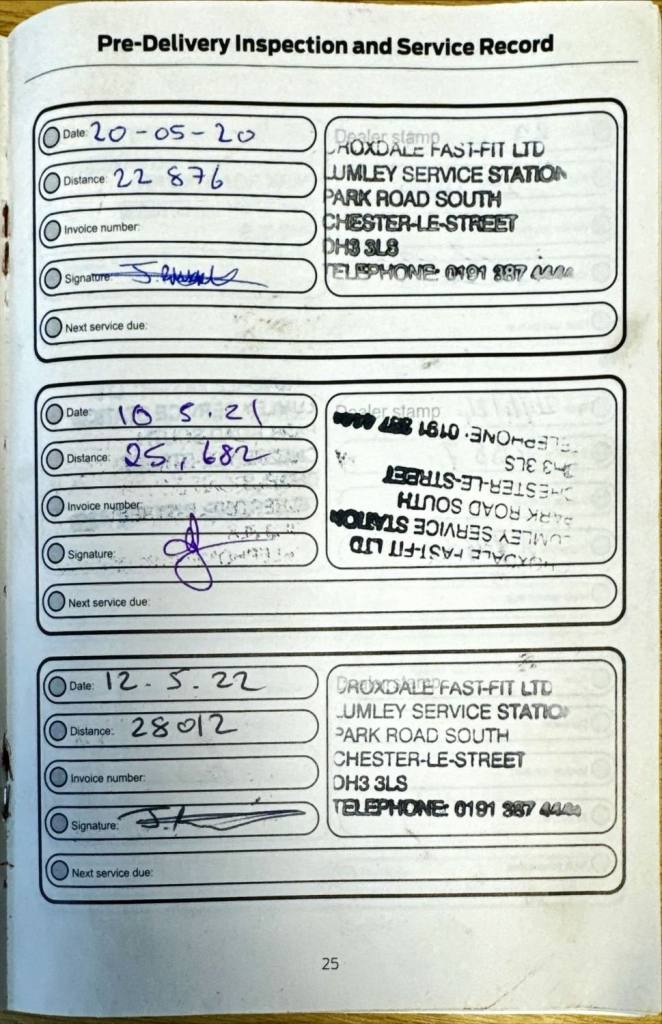 Pre-Delivery Inspection and Service Record
Date: 20-05-20
Distance: 22 876
Invoice number:
Signature:
Next service due:
Dealer stamp
CROXDALE FAST-FIT LTD
LUMLEY SERVICE STATION
PARK ROAD SOUTH
CHESTER-LE-STREET
DH3 3LS
TELEPHONE: 0191 387 4444
Date: 10 5.21
Distance: 25,682
Invoice number:
Signature:
Next service due:
Dealer stamp
CROXDALE FAST-FIT LTD
LUMLEY SERVICE STATION
PARK ROAD SOUTH
CHESTER-LE-STREET
DH3 3LS
TELEPHONE: 0191 387 4444
Date: 12.5.22
Distance: 28012
Invoice number:
Signature:
Next service due:
Dealer stamp
CROXDALE FAST-FIT LTD
LUMLEY SERVICE STATION
PARK ROAD SOUTH
CHESTER-LE-STREET
DH3 3LS
TELEPHONE: 0191 387 4444
25